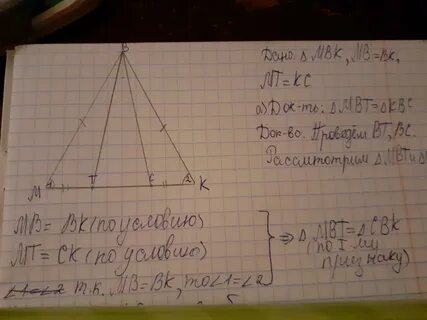 B
M
T
C
K
1
2
Дано: Δ MBK, MB=BK,
MT=KC
а) Док-ть: Δ MBT=Δ KBC
Док-во. Проведем BT, BC.
Рассмотрим Δ MBT и Δ
MB= BK (по условию)
MT= CK (по условию)
∠1=∠2 т.к. MB=BK, то ∠1=∠2
⇒ Δ MBT=Δ CBK
(по I-му
признаку)